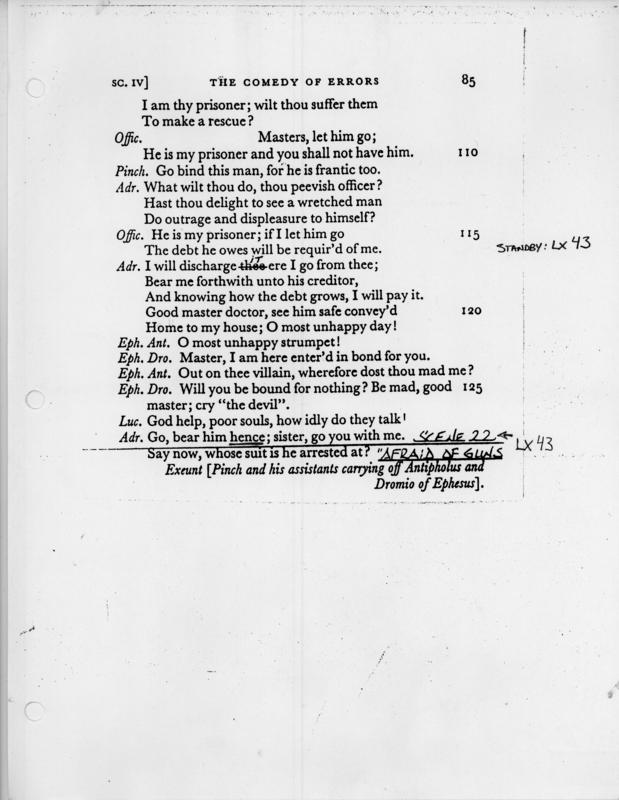 SC. IV] THE COMEDY OF ERRORS 85
I am thy prisoner; wilt thou suffer them
To make a rescue?
Offic. Masters, let him go;
He is my prisoner and you shall not have him. 110
Pinch. Go bind this man, for he is frantic too.
Adr. What wilt thou do, thou peevish officer?
Hast thou delight to see a wretched man
Do outrage and displeasure to himself?
Offic. He is my prisoner; if I let him go 115
The debt he owes will be requir'd of me. STANDBY: LX 43
Adr. I will discharge thee IT ere I go from thee;
Bear me forthwith unto his creditor,
And knowing how the debt grows, I will pay it.
Good master doctor, see him safe convey'd 120
Home to my house; O most unhappy day!
Eph. Ant. O most unhappy strumpet!
Eph. Dro. Master, I am here enter'd in bond for you.
Eph. Ant. Out on thee villain, wherefore dost thou mad me?
Eph. Dro. Will you be bound for nothing? Be mad, good 125
master; cry "the devil".
Luc. God help, poor souls, how idly do they talk!
Adr. Go, bear him hence; sister, go you with me. SCENE 22 LX 43
Say now, whose suit is he arrested at? "AFRAID OF GUNS
Exeunt [Pinch and his assistants carrying off Antipholus and
Dromio of Ephesus].